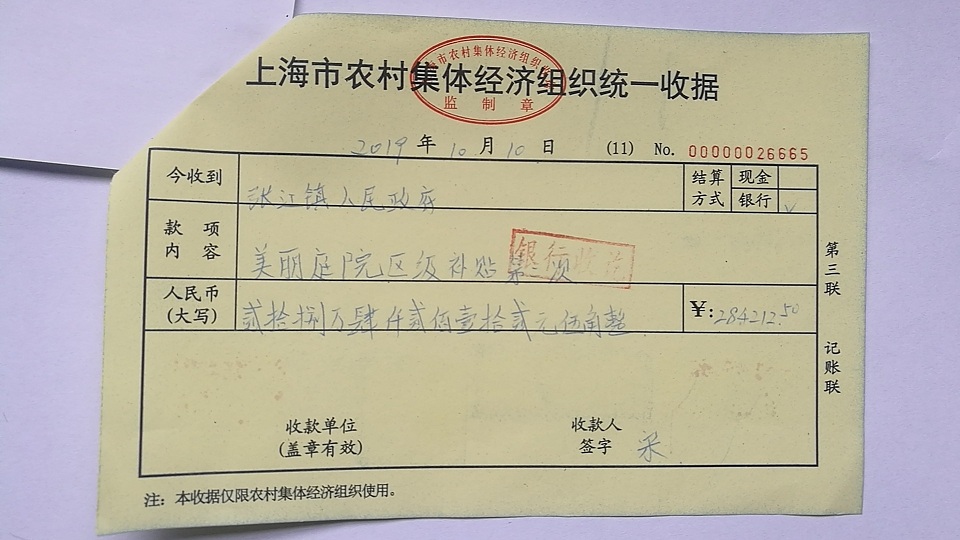 上海市农村集体经济组织统一收据
监制章
2019年10月10日 (11) No. 00000026665
今收到 张江镇人民政府
结算方式 现金
银行 √
款项内容 美丽庭院区级补贴第二项
银行收讫
人民币(大写) 贰拾捌万肆仟贰佰壹拾贰元伍角整 ¥:284212.50
第三联 记账联
收款单位 收款人
(盖章有效) 签字 宋
注：本收据仅限农村集体经济组织使用。